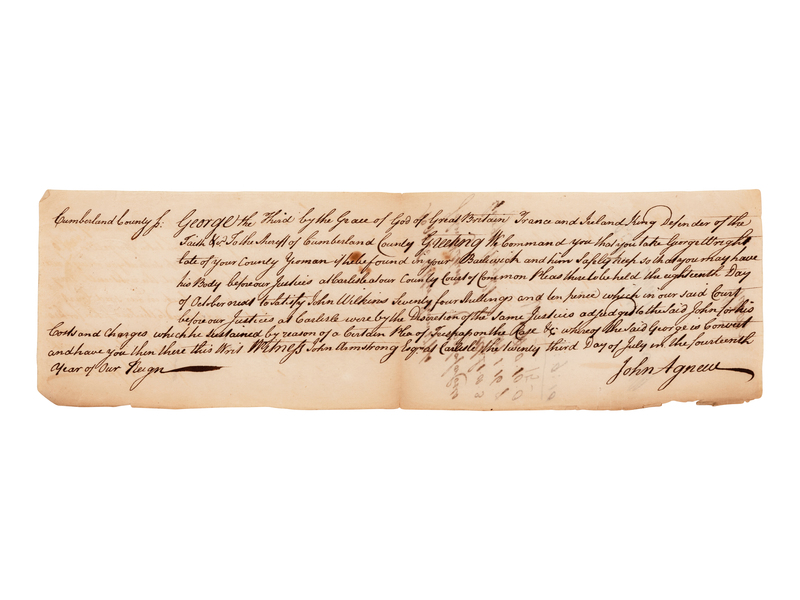 Cumberland County ss: George the Third by the Grace of God of Great Britain France and Ireland King Defender of the
Faith &c. To the Sheriff of Cumberland County Greeting We Command you that you take George Wright
late of your County Yeoman if he be found in your Bailiwick and him Safely keep so that you may have
his Body before our Justices at Carlisle at our County Court of Common Pleas there to be held the eighteenth Day
of October next to Satisfy John Wilkins Seventy four Shillings and ten pence which in our said Court
before our Justices at Carlisle were by the Discretion of the Same Justices adjudged to the said John for his
Costs and Charges which he sustained by reason of a Certain Plea of Trespass on the Case &c whereof the said George is Convict
and have you then there this Writ Witness John Armstrong Esqr. at Carlisle the twenty third Day of July in the fourteenth
Year of Our Reign
John Agnew